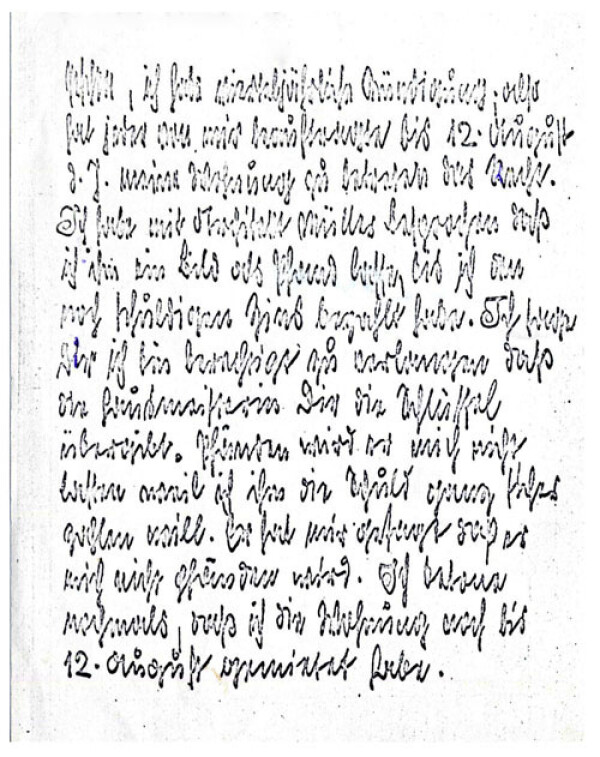 ich habe vierteljährliche Kündigung, also
hat jeder von mir beauftragte bis 12. August
d. J. meine Wohnung zu betreten das Recht.
Ich habe mit Architekt Müller besprochen daß
ich ihm ein Bild als Pfand lasse, bis ich den
noch schuldigen Zins bezahlt habe. Ich sage
Dir ich bin berechtigt zu verlangen daß
die Hausmeisterin Dir die Schlüssel
übergibt. Pfänden wird er mich nicht
lassen weil ich ihm die Schuld ganz sicher
zahlen will. Er hat mir gesagt daß er
mich nicht pfänden wird. Ich betone
nochmals, daß ich die Wohnung noch bis
12. August gemietet habe.